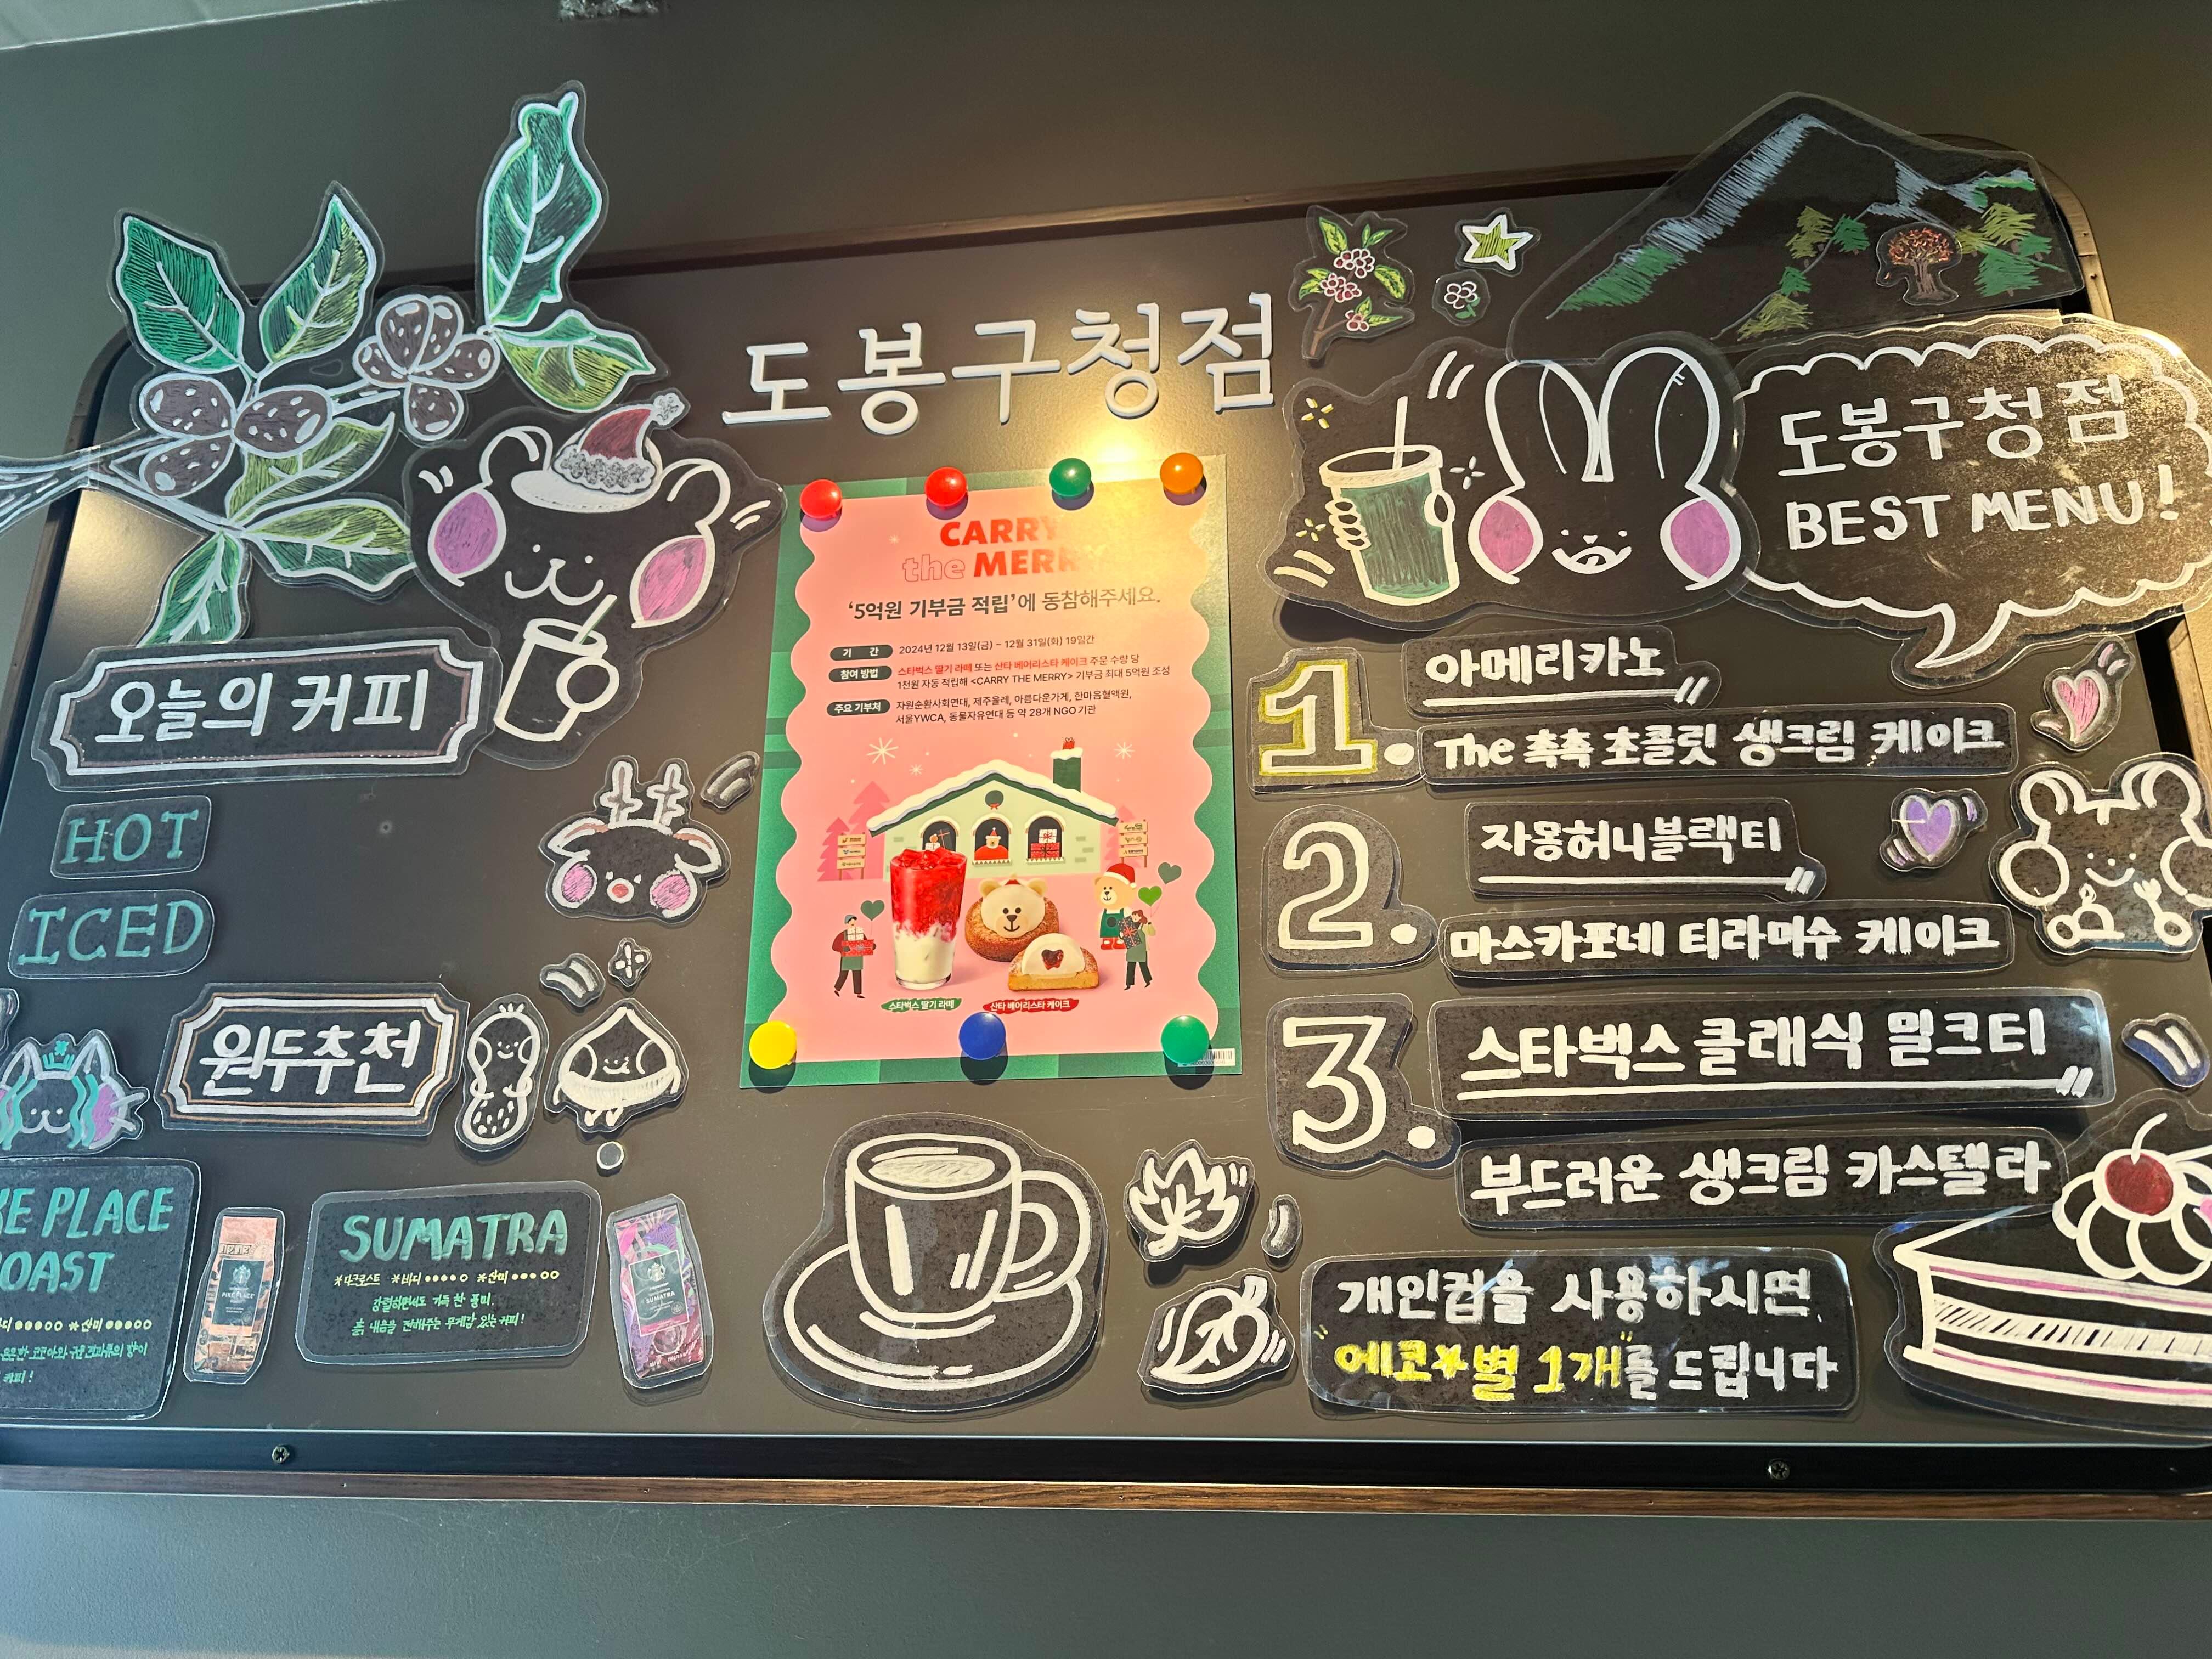 도봉구청점
오늘의 커피
HOT
ICED
원두추천
KE PLACE
OAST
바디 ●●●●● *산미 ●●●●●
커피!
SUMATRA
*다크로스트 *바디 ●●●●○ *산미 ●●●○○
강렬하면서도 가득 찬 풍미.
흙 내음을 전해주는 무게감 있는 커피!
PIKE PLACE
SUMATRA
CARRY
the MERRY
'5억원 기부금 적립'에 동참해주세요.
기 간 2024년 12월 13일(금) ~ 12월 31일(화) 19일간
참여 방법 스타벅스 딸기 라떼 또는 산타 베어리스타 케이크 주문 수량 당
1천원 자동 적립해 <CARRY THE MERRY> 기부금 최대 5억원 조성
주요 기부처 자원순환사회연대, 제주올레, 아름다운가게, 한마음혈액원,
서울YWCA, 동물자유연대 등 약 28개 NGO 기관
스타벅스 딸기 라떼
산타 베어리스타 케이크
도봉구청점
BEST MENU!
1. 아메리카노
The 촉촉 초콜릿 생크림 케이크
2. 자몽허니블랙티
마스카포네 티라미수 케이크
3. 스타벅스 클래식 밀크티
부드러운 생크림 카스텔라
개인컵을 사용하시면
"에코★별 1개"를 드립니다